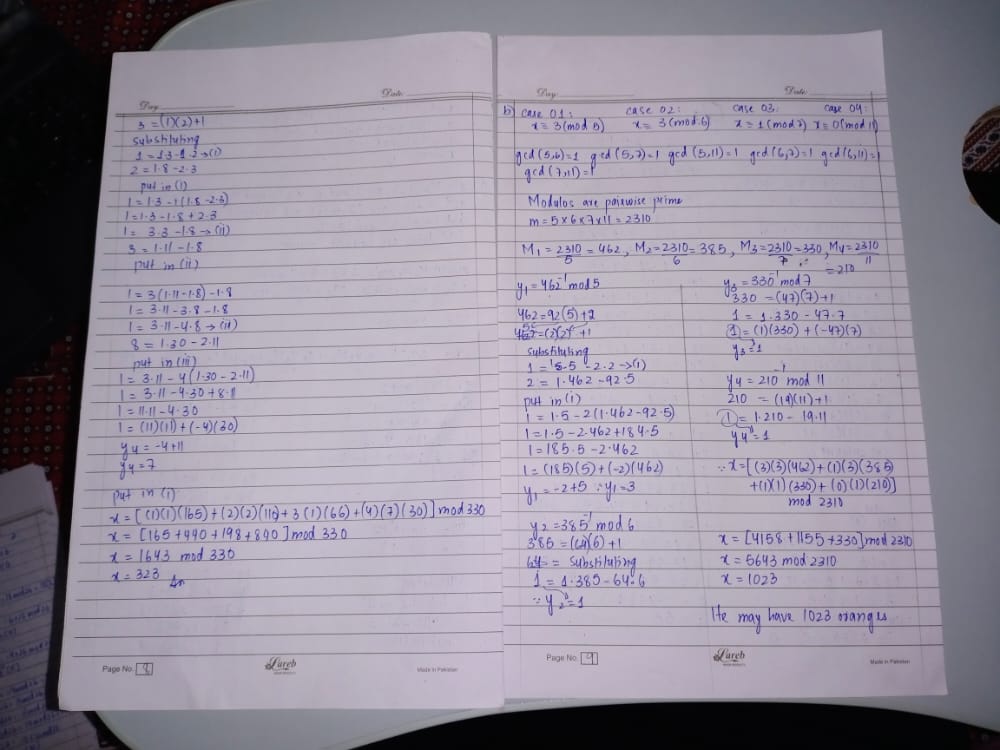 Day: Date:
3 = (1)(2)+1
substituting
1 = 1·3-1·2 → (i)
2 = 1·8-2·3
put in (i)
1 = 1·3-1(1·8-2·3)
1 = 1·3-1·8+2·3
1 = 3·3-1·8 → (ii)
3 = 1·11-1·8
put in (ii)
1 = 3(1·11-1·8)-1·8
1 = 3·11-3·8-1·8
1 = 3·11-4·8 → (iii)
8 = 1·30-2·11
put in (iii)
1 = 3·11-4(1·30-2·11)
1 = 3·11-4·30+8·11
1 = 11·11-4·30
1 = (11)(11)+(-4)(30)
y4 = -4+11
y4 = 7
put in (i)
x = [(1)(1)(165)+(2)(2)(110)+3(1)(66)+(4)(7)(30)] mod 330
x = [165+440+198+840] mod 330
x = 1643 mod 330
x = 323
Page No. 8 Lareb Made in Pakistan
Day: Date:
b) case 01: case 02: case 03: case 04:
x ≡ 3(mod 5) x ≡ 3(mod 6) x ≡ 1(mod 7) x ≡ 0(mod 11)
gcd(5,6)=1 gcd(5,7)=1 gcd(5,11)=1 gcd(6,7)=1 gcd(6,11)=1
gcd(7,11)=1
Modulos are pairwise prime
m = 5×6×7×11 = 2310
M1 = 2310/5 = 462, M2 = 2310/6 = 385, M3 = 2310/7 = 330, M4 = 2310/11
= 210
y1 = 462⁻¹ mod 5
462 = 92(5)+2
5 = (2)(2)+1
substituting
1 = 1·5-2·2 → (i)
2 = 1·462-92·5
put in (i)
1 = 1·5-2(1·462-92·5)
1 = 1·5-2·462+184·5
1 = 185·5-2·462
1 = (185)(5)+(-2)(462)
y1 = -2+5 ∵ y1 = 3
y2 = 385⁻¹ mod 6
385 = (64)(6)+1
substituting
1 = 1·385-64·6
∵ y2 = 1
y3 = 330⁻¹ mod 7
330 = (47)(7)+1
1 = 1·330-47·7
1 = (1)(330)+(-47)(7)
y3 = 1
y4 = 210⁻¹ mod 11
210 = (19)(11)+1
1 = 1·210-19·11
y4 = 1
∵ x = [(3)(3)(462)+(1)(3)(385)
+(1)(1)(330)+(0)(1)(210)]
mod 2310
x = [4158+1155+330] mod 2310
x = 5643 mod 2310
x = 1023
He may have 1023 oranges
Page No. 9 Lareb Made in Pakistan